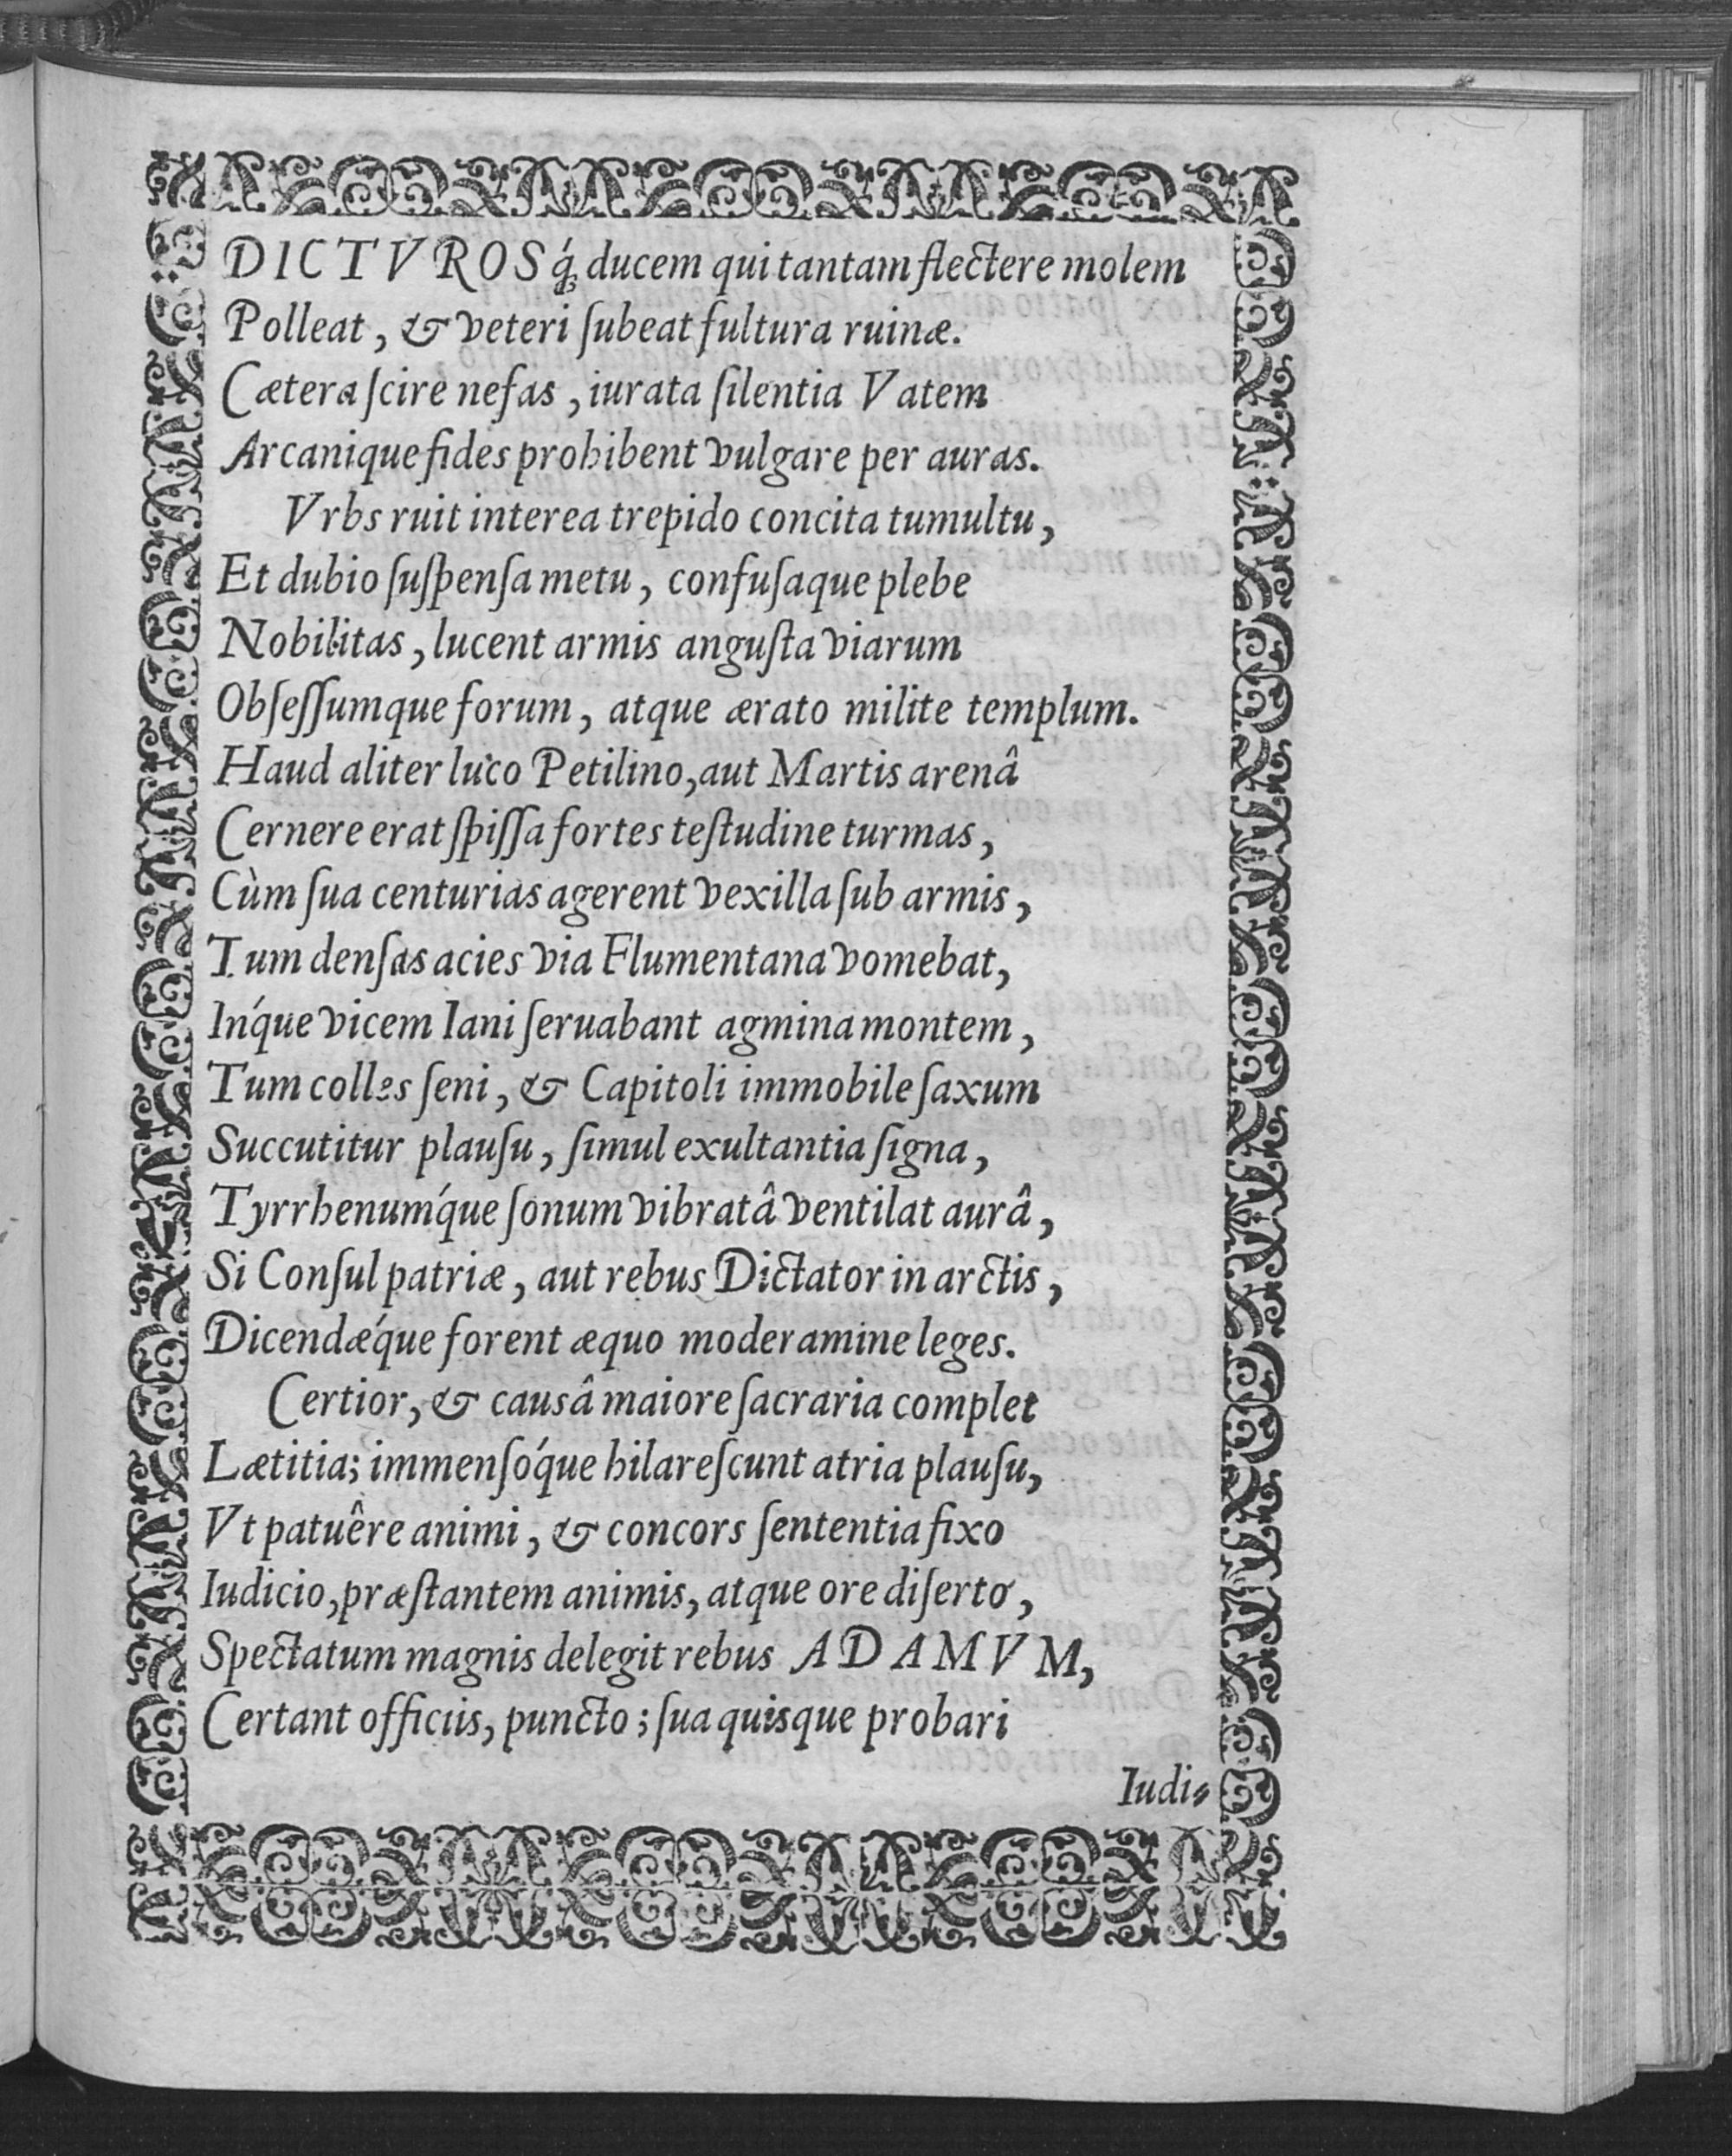 DICTVROSq́; ducem qui tantam flectere molem
Polleat, & veteri ſubeat fultura ruinæ.
Cætera ſcire nefas, iurata ſilentia Vatem
Arcanique fides prohibent vulgare per auras.
Vrbs ruit interea trepido concita tumultu,
Et dubio ſuſpenſa metu, confuſaque plebe
Nobilitas, lucent armis anguſta viarum
Obſeſſumque forum, atque ærato milite templum.
Haud aliter luco Petilino, aut Martis arenâ
Cernere erat ſpiſſa fortes teſtudine turmas,
Cùm ſua centurias agerent vexilla ſub armis,
Tum denſas acies via Flumentana vomebat,
Inq́ue vicem Iani ſeruabant agmina montem,
Tum colles ſeni, & Capitoli immobile ſaxum
Succutitur plauſu, ſimul exultantia ſigna,
Tyrrhenumq́ue ſonum vibratâ ventilat aurâ,
Si Conſul patriæ, aut rebus Dictator in arctis,
Dicendæq́ue forent æquo moderamine leges.
Certior, & causâ maiore ſacraria complet
Lætitia; immenſoq́ue hilareſcunt atria plauſu,
Vt patuêre animi, & concors ſententia fixo
Iudicio, præſtantem animis, atque ore diſerto,
Spectatum magnis delegit rebus ADAMVM,
Certant officiis, puncto; ſua quisque probari
Iudi-